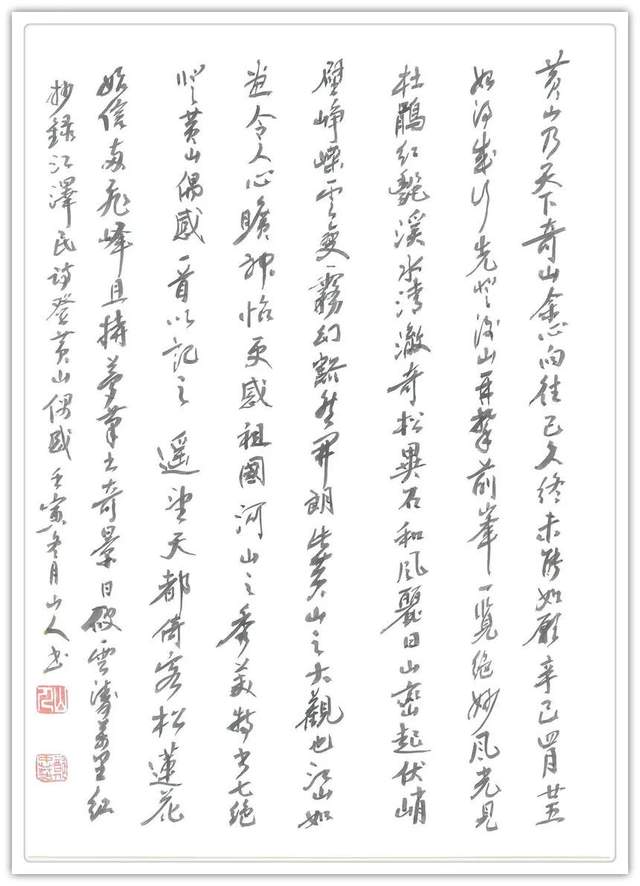 黄山乃天下奇山余心向往已久终未能如願辛巳四月廿五
始得成行先登後山再攀前峯一览绝妙风光見
杜鵑红艷溪水清澈奇松異石和风麗日山巒起伏峭
壁峥嵘雲变霧幻豁然开朗此黄山之大觀也江山如
画令人心曠神怡更感祖國河山之秀美特书七绝
登黄山偶感一首以記之遥望天都倚客松蓮花
始信两飛峰且持梦筆书奇景日破雲濤萬里红
抄録江澤民詩登黄山偶感壬寅冬月山人书